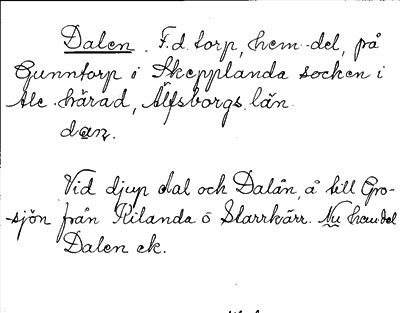 Dalen. F.d. torp, hem.del, på
Gunntorp i Skepplanda socken i
Ale härad, Älfsborgs län.
dan.
Vid djup dal och Dalån, å till Gro-
-sjön från Rilanda ö Starrkärr. Nu handel
Dalen ek.